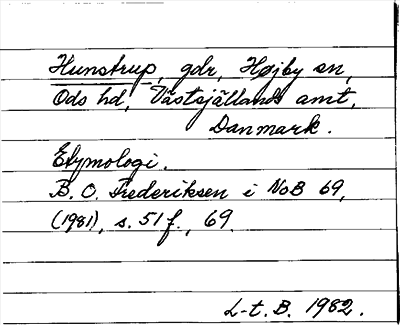 Hunstrup, gdr, Højby sn,
Ods hd, Västsjällands amt,
Danmark.
Etymologi.
B. O. Frederiksen i NoB 69,
(1981), s. 51 f., 69.
L-t. B. 1982.